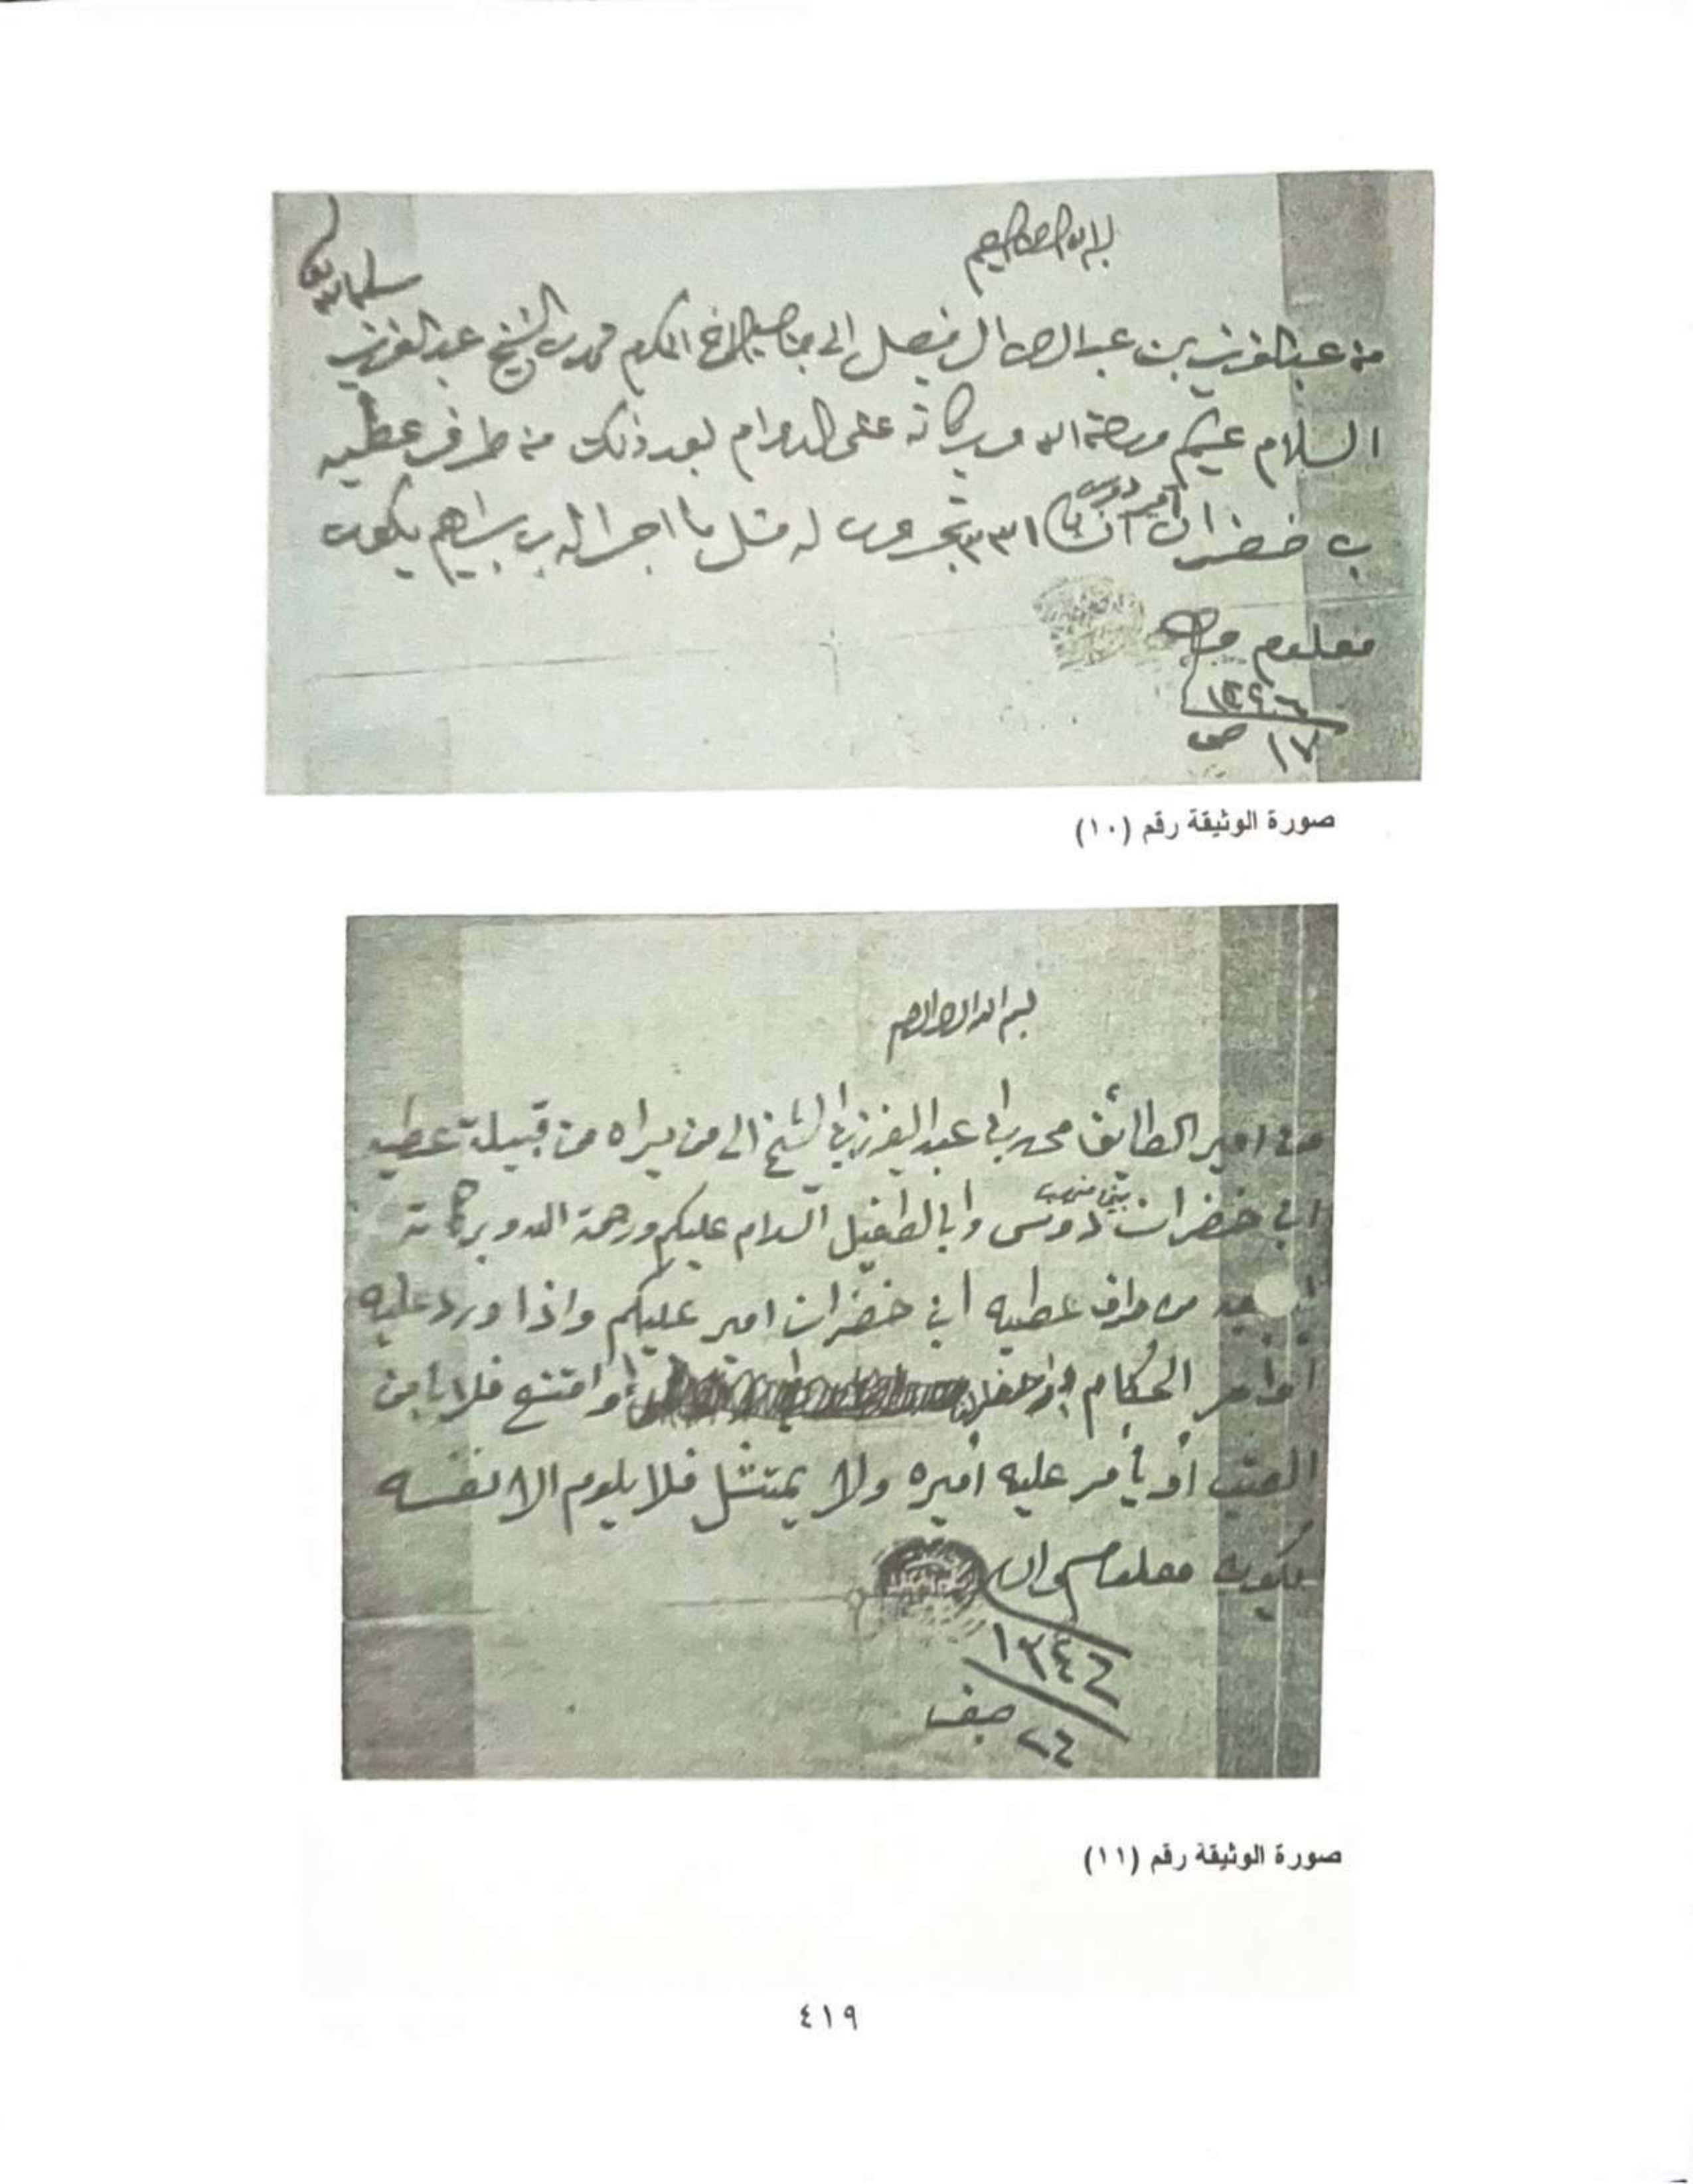 من عبدالعزيز بن عبدالرحمن ال فيصل الى جناب الاخ المكرم محمد بن الشيخ عبدالعزيز
السلام عليكم ورحمة الله وبركاته على الدوام بعد ذلك من طرف عطيه
بن خضران امير دوس تجرون له مثل ما اجرا له بن براهيم يكون
معلوم
صورة الوثيقة رقم (١٠)
بسم الله الرحمن الرحيم
من امير الطائف محمد ابن عبد العزيز الشيخ الى من يراه من قبيلة عطيه
ابن خضران بني منهب دوس وابا الطفيل السلام عليكم ورحمة الله وبركاته
بعد من طرف عطيه ابن خضران امير عليكم واذا ورد عليه
اوامر الحكام أو امتنع فلا يأمن
العتب أو يأمر عليه أميره ولا يمتثل فلا يلوم الا نفسه
يكون معلوم والسلام
١٣٤٦
٢٤ صفر
صورة الوثيقة رقم (١١)
٤١٩